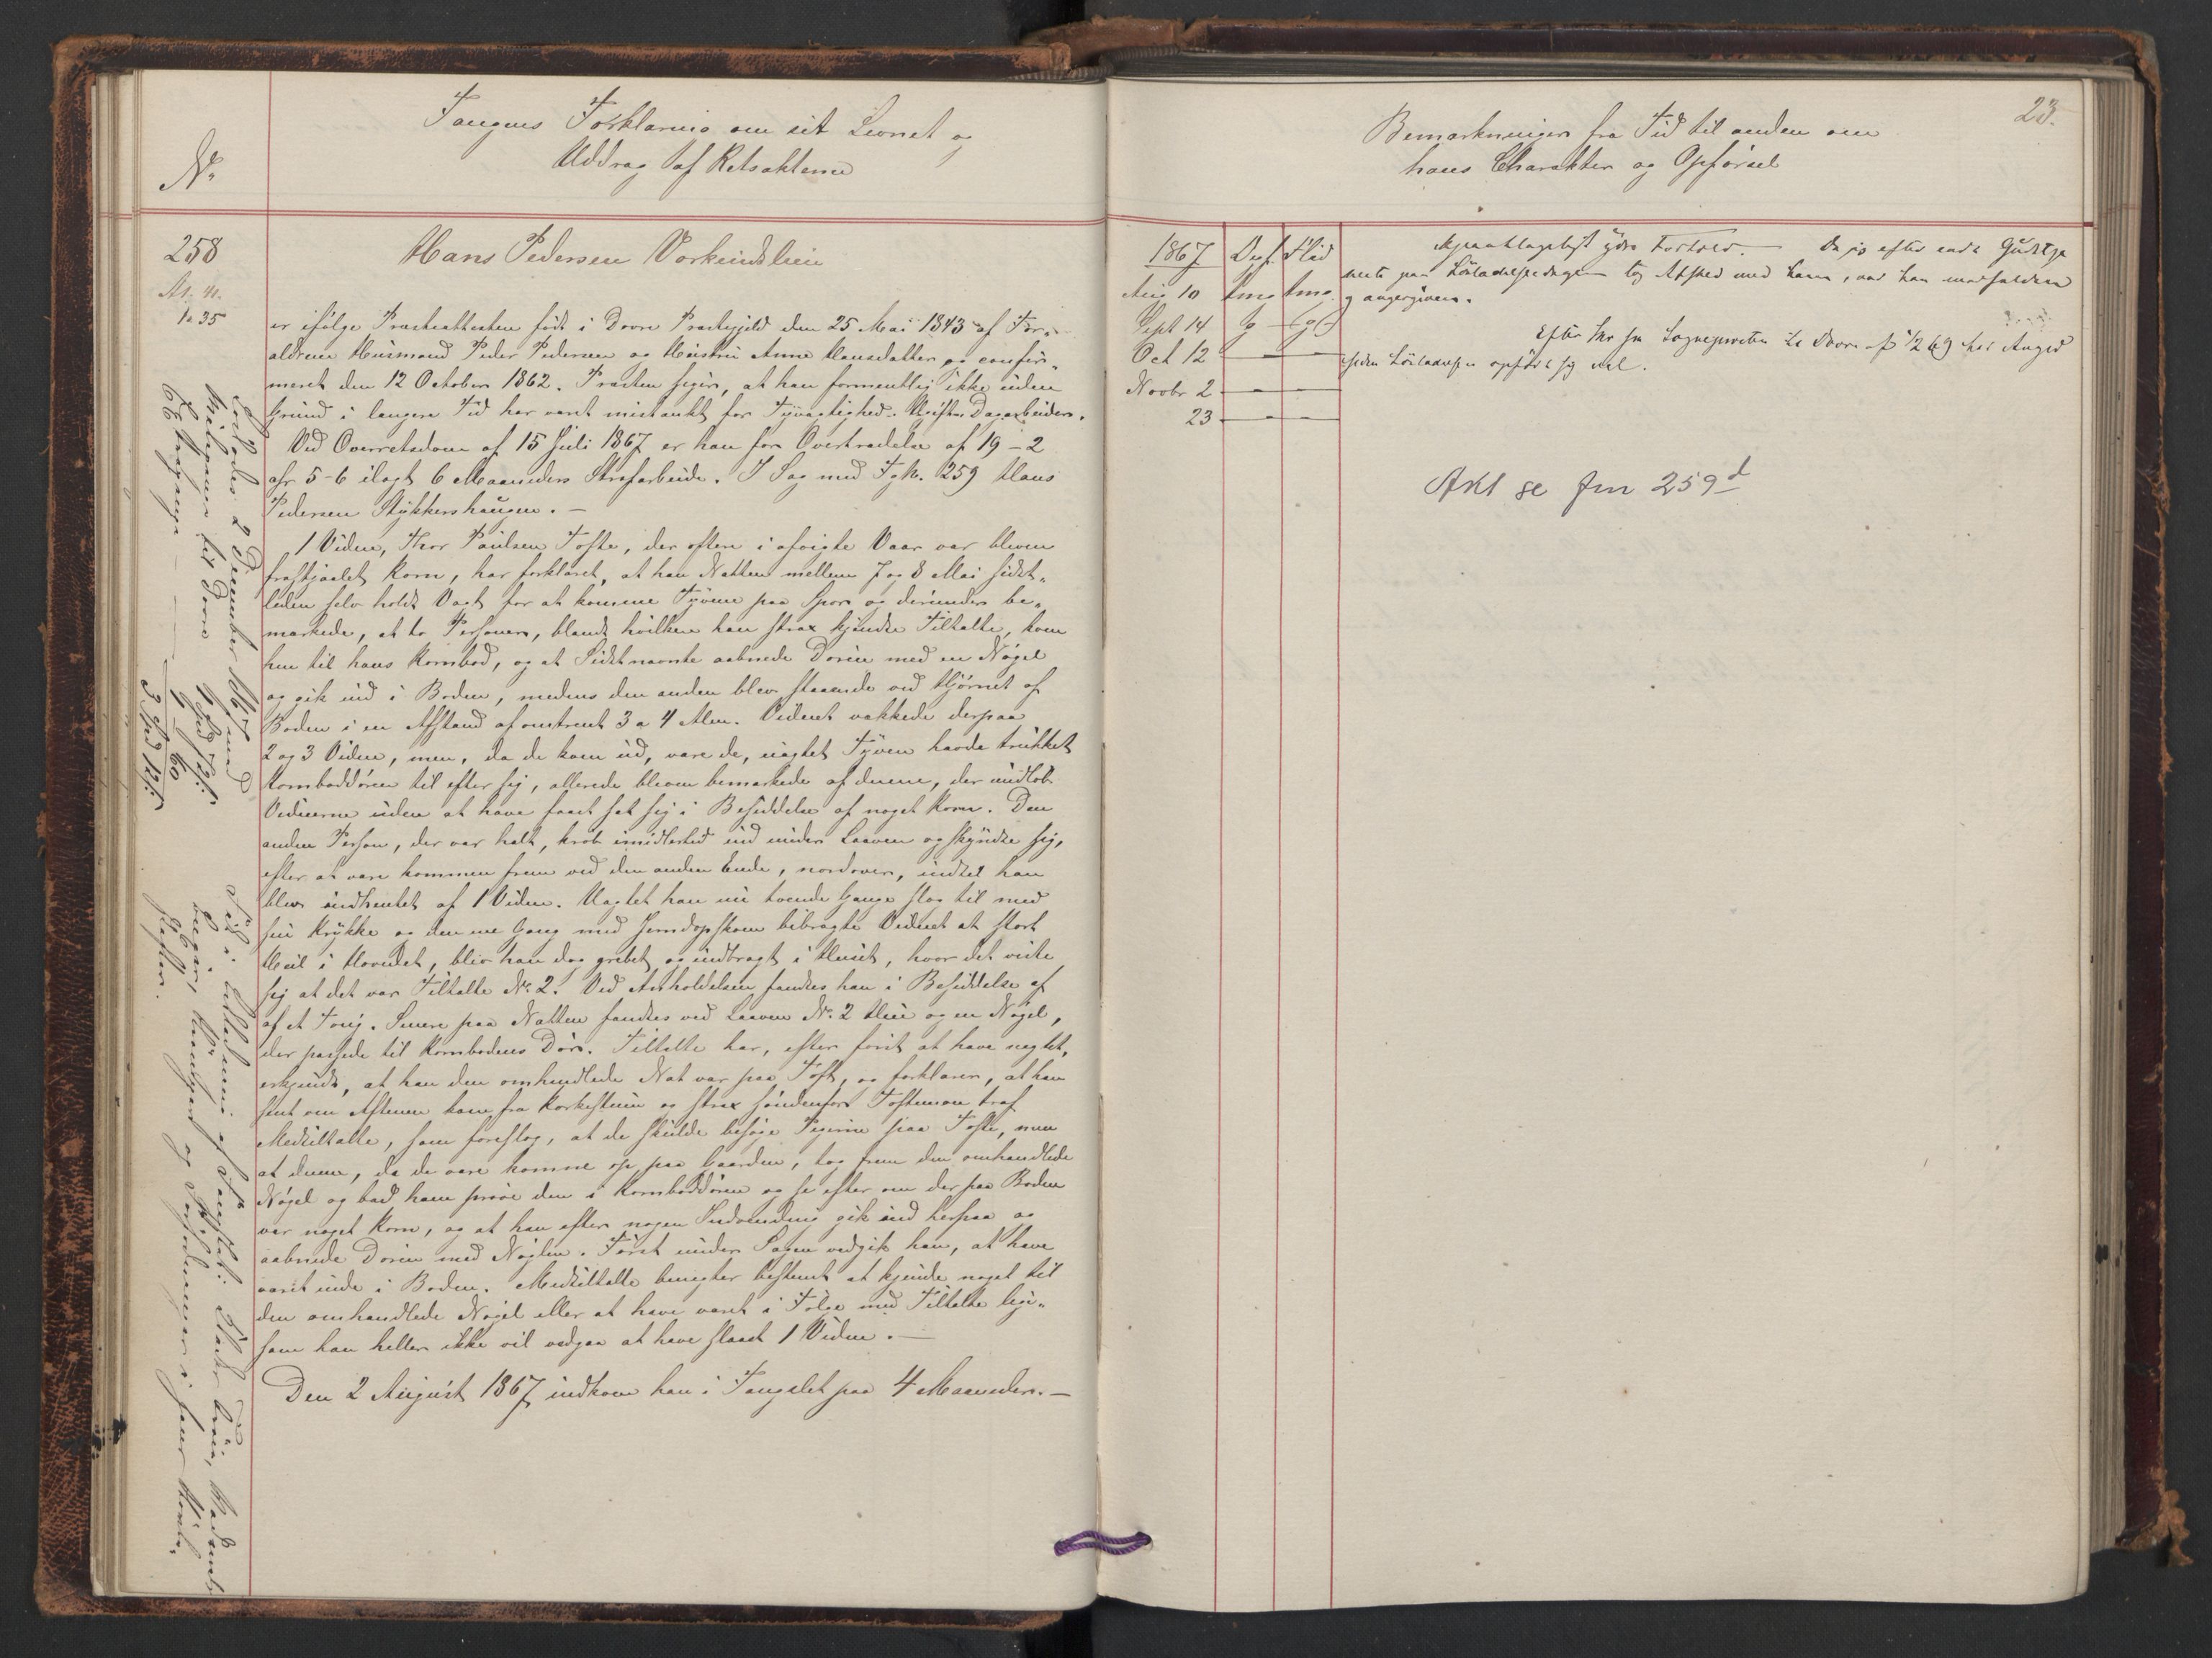 Fangens Forklaring om sit Levnet og
Uddrag af Retsakterne
No
258
Hans Pedersen Vorkinslien
1a 35
er ifølge Præsteattesten født i Dovre Præstegjeld den 25 Mai 1843 af For-
ældrene Husmand Peder Pedersen og Hustru Anne Hansdatter og confir-
meret den 12 October 1862. Præsten siger, at han formentlig ikke uden
Grund i længere Tid har været mistænkt for Tyvagtighed. Ugift Dagarbeider.
Ved Overretsdom af 15 Juli 1867 er han for Overtrædelse af 19-2
cfr 5-6 ilagt 6 Maaneders Strafarbeide. I Sag med Fg No. 259 Hans
Pedersen Stykkershaugen.—
1 Vidne, Thor Paulsen Tofte, der oftere i afvigte Vaar var bleven
frastjaalet Korn, har forklaret, at han Natten mellem 7 og 8 Mai sidst-
leden selv holdt Vagt for at komme Tyvene paa Spor og derunder be-
mærkede, at to Personer, blandt hvilken han strax kjendte Tiltalte, kom
hen til hans Kornbod, og at Sidstnævnte aabnede Døren med en Nøgel
og gik ind i Boden, medens den anden blev staaende ved Hjørnet af
Boden i en Afstand af omtrent 3 a 4 Alen. Vidnet vækkede derpaa
2 og 3 Vidne, men, da de kom ud, vare de, uagtet Tyven havde trukket
Kornboddøren til efter sig, allerede bleven bemærkede af denne, der undløb
Vidnerne uden at have faaet sat sig i Besiddelse af noget Korn. Den
anden Person, der var halt, krøb imidlertid ind under Laaven og skyndte sig,
efter at være kommen frem ved den anden Ende, nordover, indtil han
blev indhentet af 1 Vidne. Uagtet han nu tvende Gange slog til med
sin Krykke og den ene Gang med Jerndopskoen bibragte Vidnet et stort
Hul i Hovedet, blev han dog grebet og indbragt i Huset, hvor det viste
sig at det var Tiltalte No. 2. Ved Anholdelsen fandtes han i Besiddelse af
af et Toug. Senere paa Natten fandtes ved Laaven No. 2 Hue og en Nøgel,
der passede til Kornbodens Dør. Tiltalte har, efter først at have negtet,
erkjendt, at han den omhandlede Nat var paa Toft, og forklarer, at han
sent om Aftenen kom fra og strax søndenfor Toftemoen traf
Medtiltalte, som foreslog, at de skulde besøge Pigerne paa Tofte, men
at denne, da de vare komne op paa Gaarden, tog frem den omhandlede
Nøgel og bad ham prøve den i Kornboddøren og se efter om der paa Boden
var noget Korn, og at han efter nogen Indvending gik ind herpaa og
aabnede Døren med Nøglen. Først under Sagen vedgik han, at have
været inde i Boden. Medtiltalte benegter bestemt at kjende noget til
den omhandlede Nøgel eller at have været i Følge med Tiltalte lige-
som han heller ikke vil vedgaa at have slaaet 1 Vidne.—
Den 2 August 1867 indkom han i Fangslet paa 4 Maaneder.—
Løslades 2 December 1867 med
Reisepenge til Dovre 1 Spd 72 s:
1 „ 60
3 Spd 12 s:
23.
Bemærkninger fra Tid til anden om
hans Charakter og Opførsel
1867 Opf. Flid
Aug 10 tmg tmg.
Sept 14 g — g(-)
Oct 12 — —
Novbr 2 — —
23 — —
ydre Forhold. — Da jeg efter endt Gudstje-
neste paa Løsladelsesdagen tog Afsked med ham, var han
og angergiven.
Efter fra Sognepresten til Dovre af 1/2 69 har
siden Løsladelsen opført sig vel.
Akt se fm 259 d